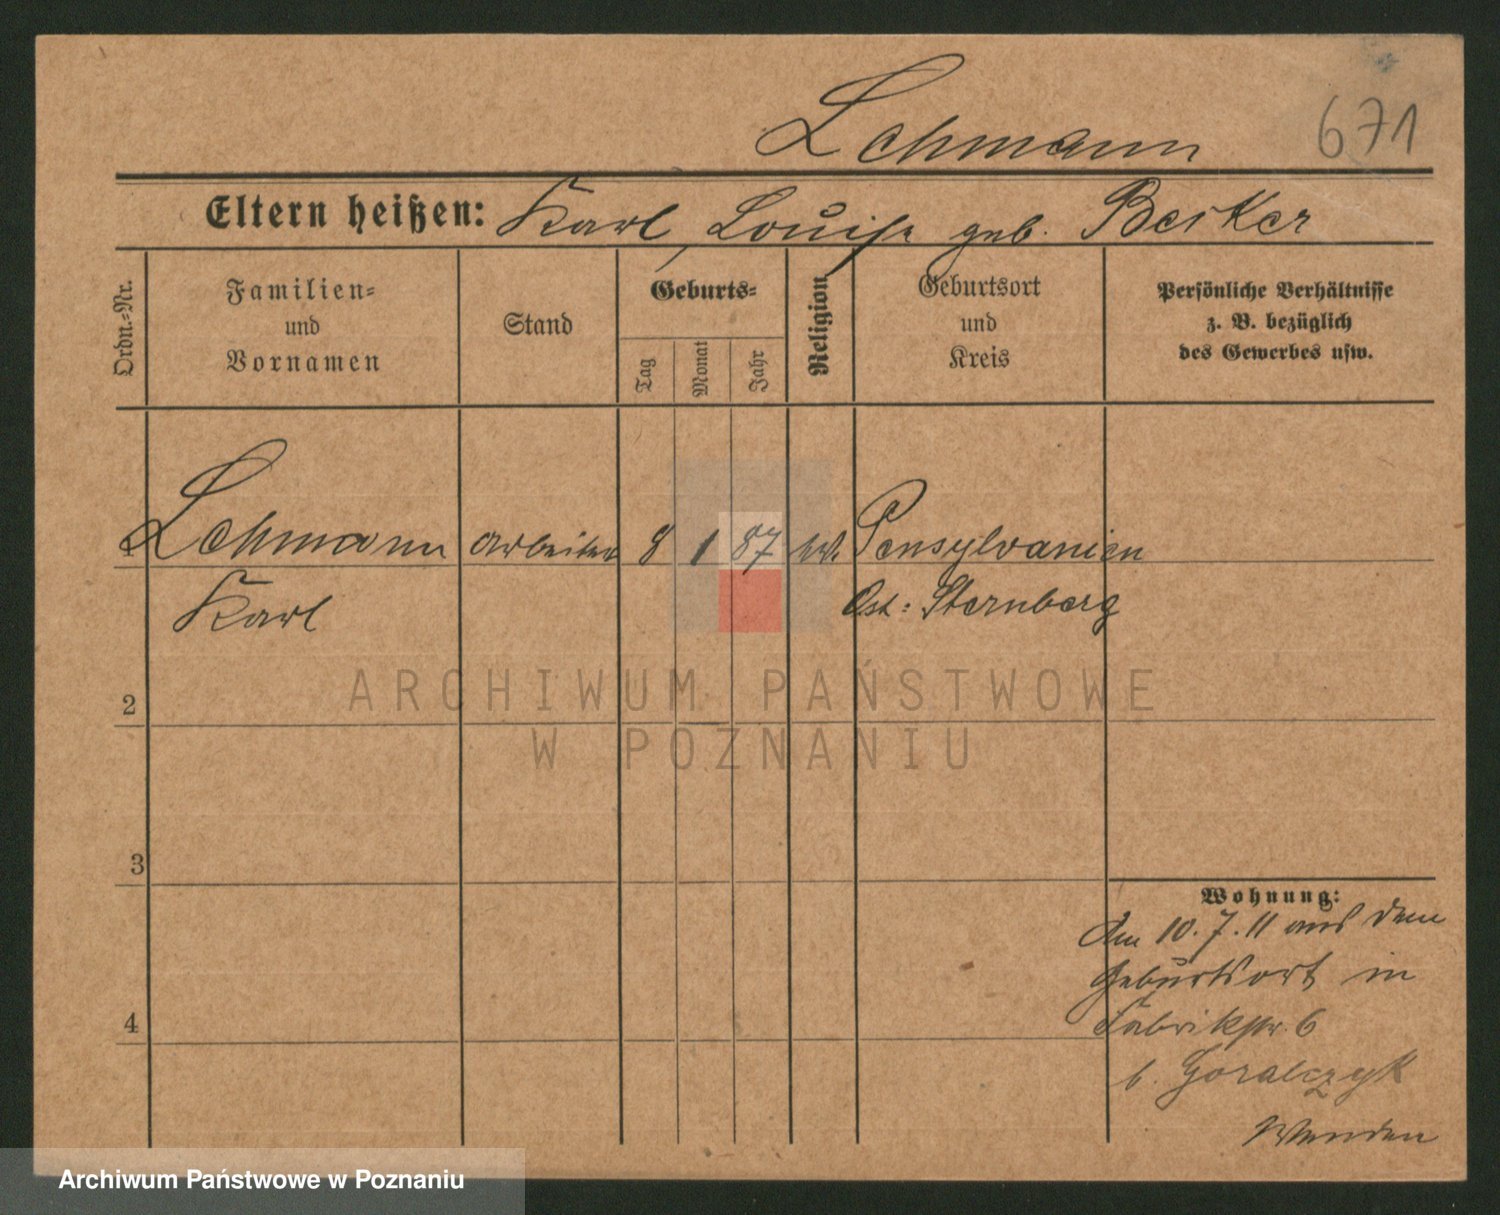 Lehmann 671
Eltern heißen: Karl, Louise geb. Becker
Ordn.-Nr.
Familien-
und
Vornamen
Stand
Geburts-
Tag
Monat
Jahr
Religion
Geburtsort
und
Kreis
Persönliche Verhältnisse
z. B. bezüglich
des Gewerbes usw.
1 Lehmann Arbeiter 8 1 87 ev. Pensylvanien
Karl Ost-Sternberg
2
3
4
Wohnung:
Am 10.7.11 aus dem
Geburtsort in
Fabrikstr. 6
b. Goralczyk
Wenden
ARCHIWUM PAŃSTWOWE
W POZNANIU
Archiwum Państwowe w Poznaniu